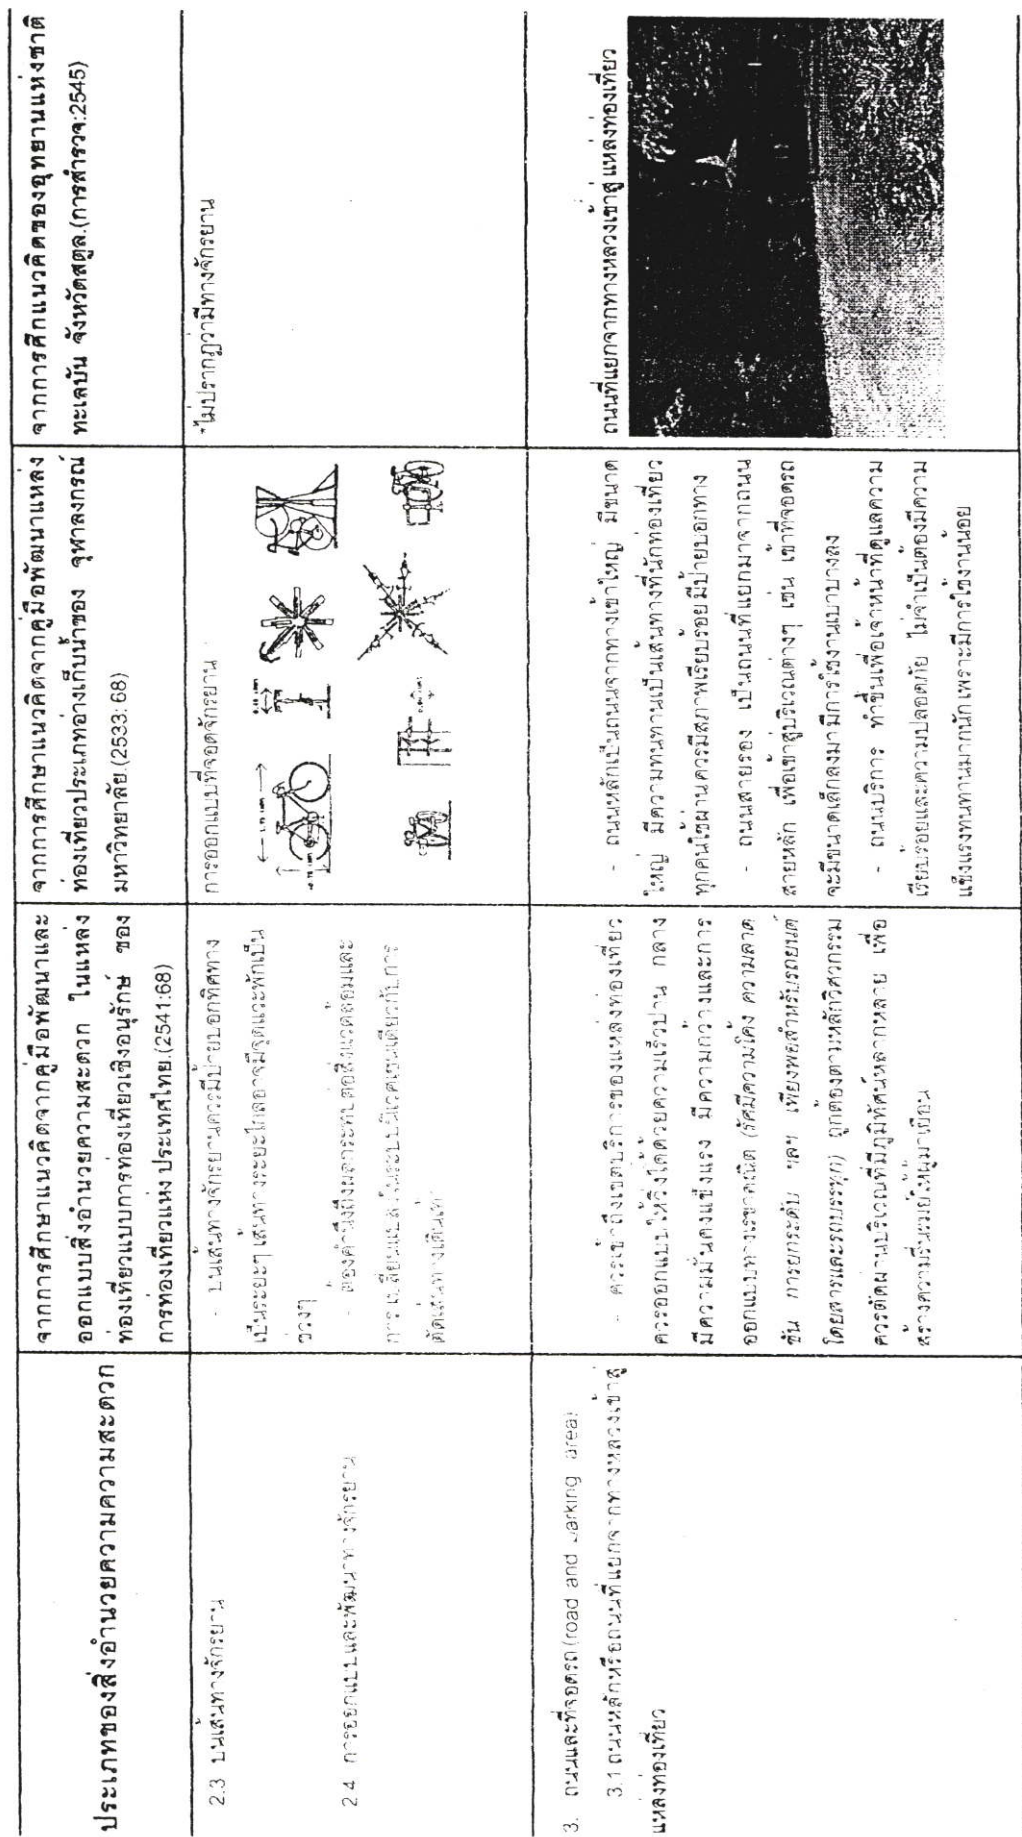 ประเภทของสิ่งอำนวยความความสะดวก
จากการศึกษาแนวคิดจากคู่มือพัฒนาและ
ออกแบบสิ่งอำนวยความสะดวก ในแหล่ง
ท่องเที่ยวแบบการท่องเที่ยวเชิงอนุรักษ์ ของ
การท่องเที่ยวแห่ง ประเทศไทย.(2541:68)
จากการศึกษาแนวคิดจากคู่มือพัฒนาแหล่ง
ท่องเที่ยวประเภทอ่างเก็บน้ำของ จุฬาลงกรณ์
มหาวิทยาลัย.(2533: 68)
จากการศึกแนวคิดของอุทยานแห่งชาติ
ทะเลบัน จังหวัดสตูล.(การสำรวจ:2545)
2.3 บนเส้นทางจักรยาน
2.4 การออกแบบและพัฒนาทางจักรยาน
- บนเส้นทางจักรยานควรมีป้ายบอกทิศทาง
เป็นระยะๆ เส้นทางระยะไกลอาจมีจุดแวะพักเป็น
ช่วงๆ
- ต้องคำนึงถึงผลกระทบต่อสิ่งแวดล้อมและ
การเปลี่ยนแปลงในระบบนิเวศเช่นเดียวกับการ
ตัดเส้นทางเดินเท้า
การออกแบบที่จอดจักรยาน
*ไม่ปรากฏว่ามีทางจักรยาน
3. ถนนและที่จอดรถ(road and parking area)
3.1 ถนนหลักหรือถนนที่แยกจากทางหลวงเข้าสู่
แหล่งท่องเที่ยว
- ควรเข้าถึงเขตบริการของแหล่งท่องเที่ยว
ควรออกแบบให้วิ่งได้ด้วยความเร็วปาน กลาง
มีความมั่นคงแข็งแรง มีความกว้างและการ
ออกแบบทางเรขาคณิต (รัศมีความโค้ง ความลาด
ชัน การยกระดับ ฯลฯ เพียงพอสำหรับรถยนต์
โดยสารและรถบรรทุก) ถูกต้องตามหลักวิศวกรรม
ควรตัดผ่านบริเวณที่มีภูมิทัศน์หลากหลาย เพื่อ
สร้างความรื่นรมย์ให้ผู้มาเยือน
- ถนนหลักเป็นถนนจากทางเข้าใหญ่ มีขนาด
ใหญ่ มีความทนทานเป็นเส้นทางที่นักท่องเที่ยว
ทุกคนใช้ผ่านควรมีสภาพเรียบร้อย มีป้ายบอกทาง
- ถนนสายรอง เป็นถนนที่แยกมาจากถนน
สายหลัก เพื่อเข้าสู่บริเวณต่างๆ เช่น เข้าที่จอดรถ
จะมีขนาดเล็กลงมา มีการใช้งานเบาบางลง
- ถนนบริการ ทำขึ้นเพื่อเจ้าหน้าที่ดูแลความ
เรียบร้อยและความปลอดภัย ไม่จำเป็นต้องมีความ
แข็งแรงทนทานมากนักเพราะมีการใช้งานน้อย
ถนนที่แยกจากทางหลวงเข้าสู่ แหล่งท่องเที่ยว